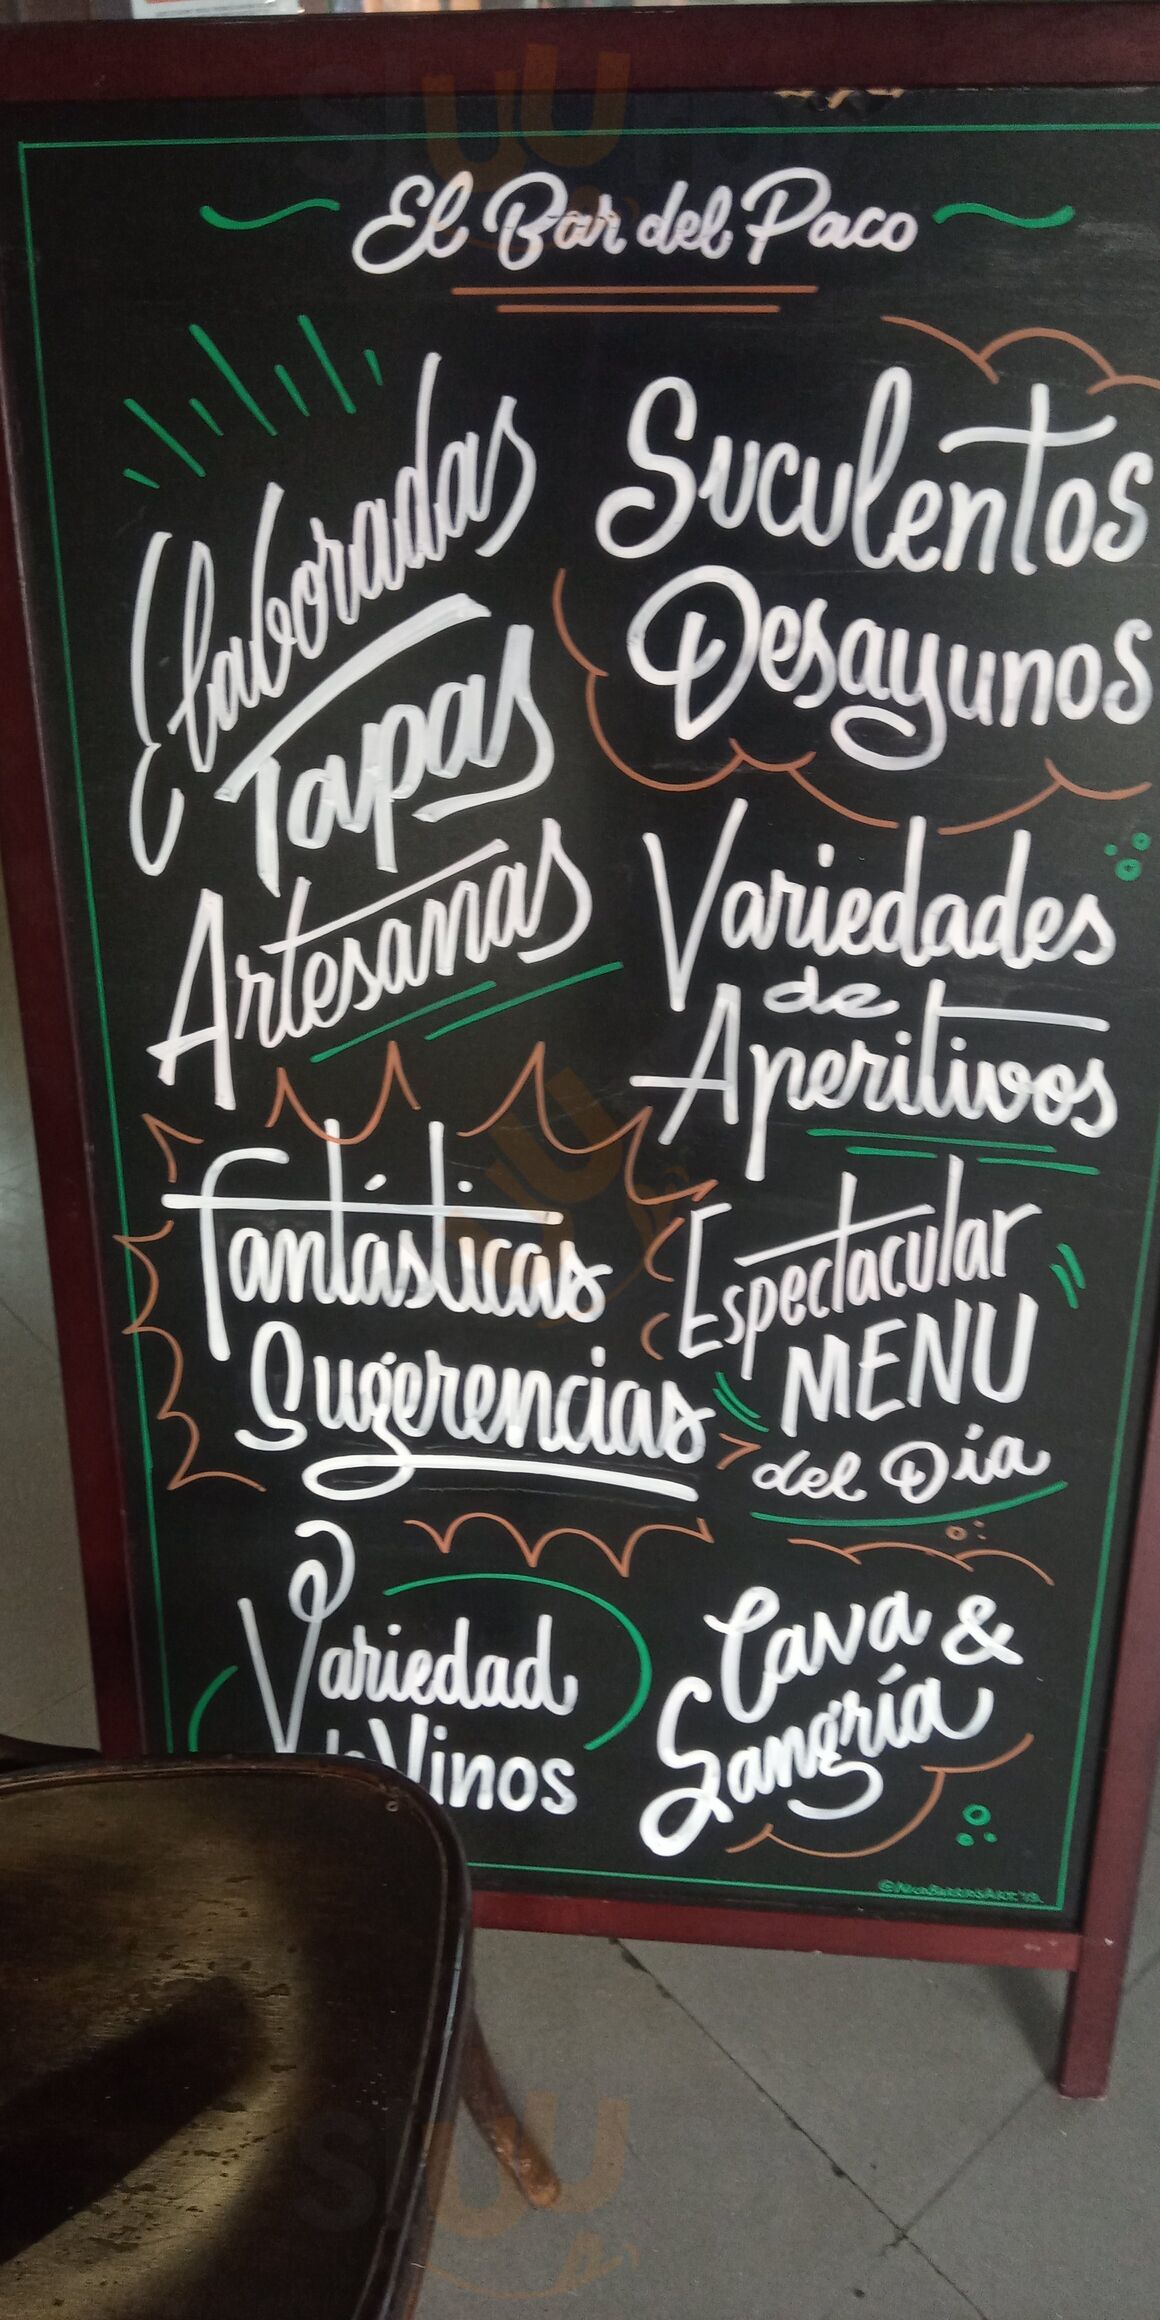 El Bar del Paco
Elaboradas
Tapas
Artesanas
Suculentos
Desayunos
Variedades
de
Aperitivos
Fantásticas
Sugerencias
Espectacular
MENU
del Día
Variedad
Vinos
Cava &
Sangría